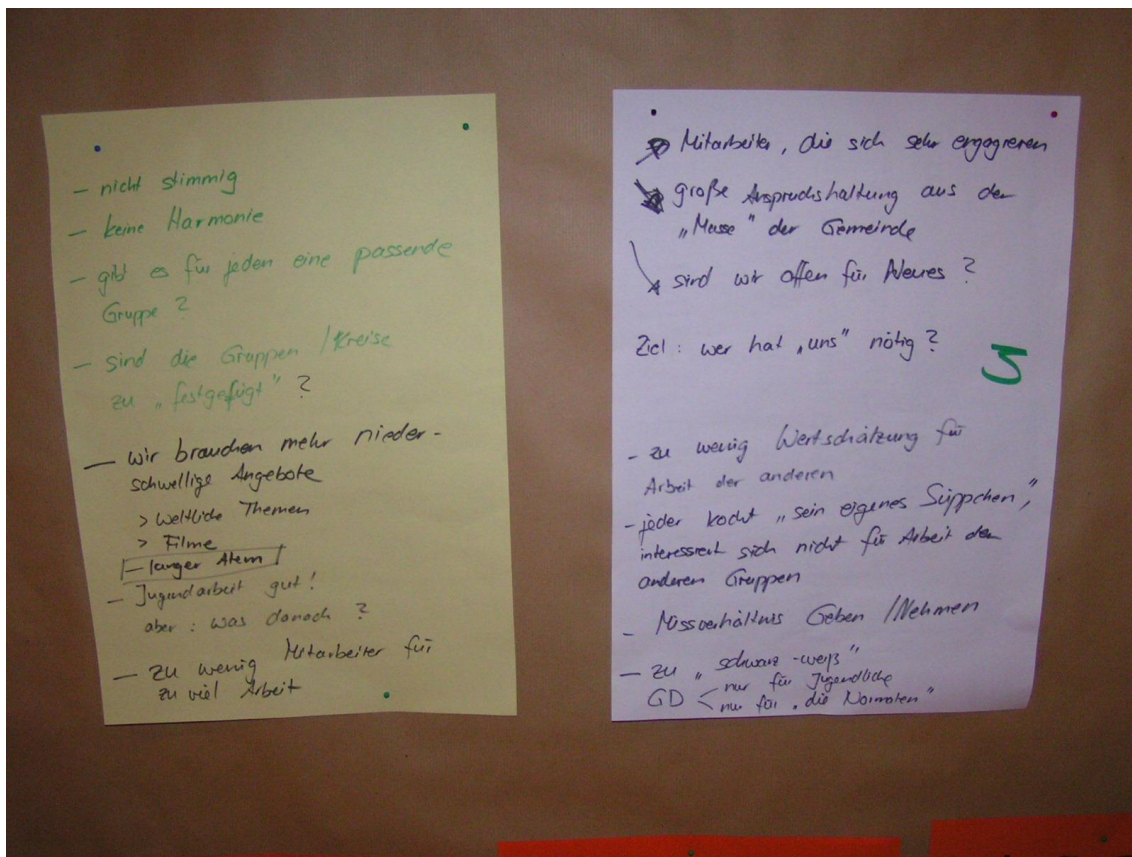 - nicht stimmig
- keine Harmonie
- gibt es für jeden eine passende
Gruppe ?
- sind die Gruppen / Kreise
zu „festgefügt" ?
- wir brauchen mehr nieder-
schwellige Angebote
> weltliche Themen
> Filme
- langer Atem
- Jugendarbeit gut !
aber : was danach ?
- zu wenig Mitarbeiter für
zu viel Arbeit
Mitarbeiter, die sich sehr engagieren
große Anspruchshaltung aus der
„Masse" der Gemeinde
sind wir offen für Neues ?
Ziel : wer hat „uns" nötig ?
5
- zu wenig Wertschätzung für
Arbeit der anderen
- jeder kocht „sein eigenes Süppchen",
interessiert sich nicht für Arbeit der
anderen Gruppen
- Missverhältnis Geben / Nehmen
- zu „schwarz-weiß"
GD < nur für Jugendliche
< nur für „die Normalen"